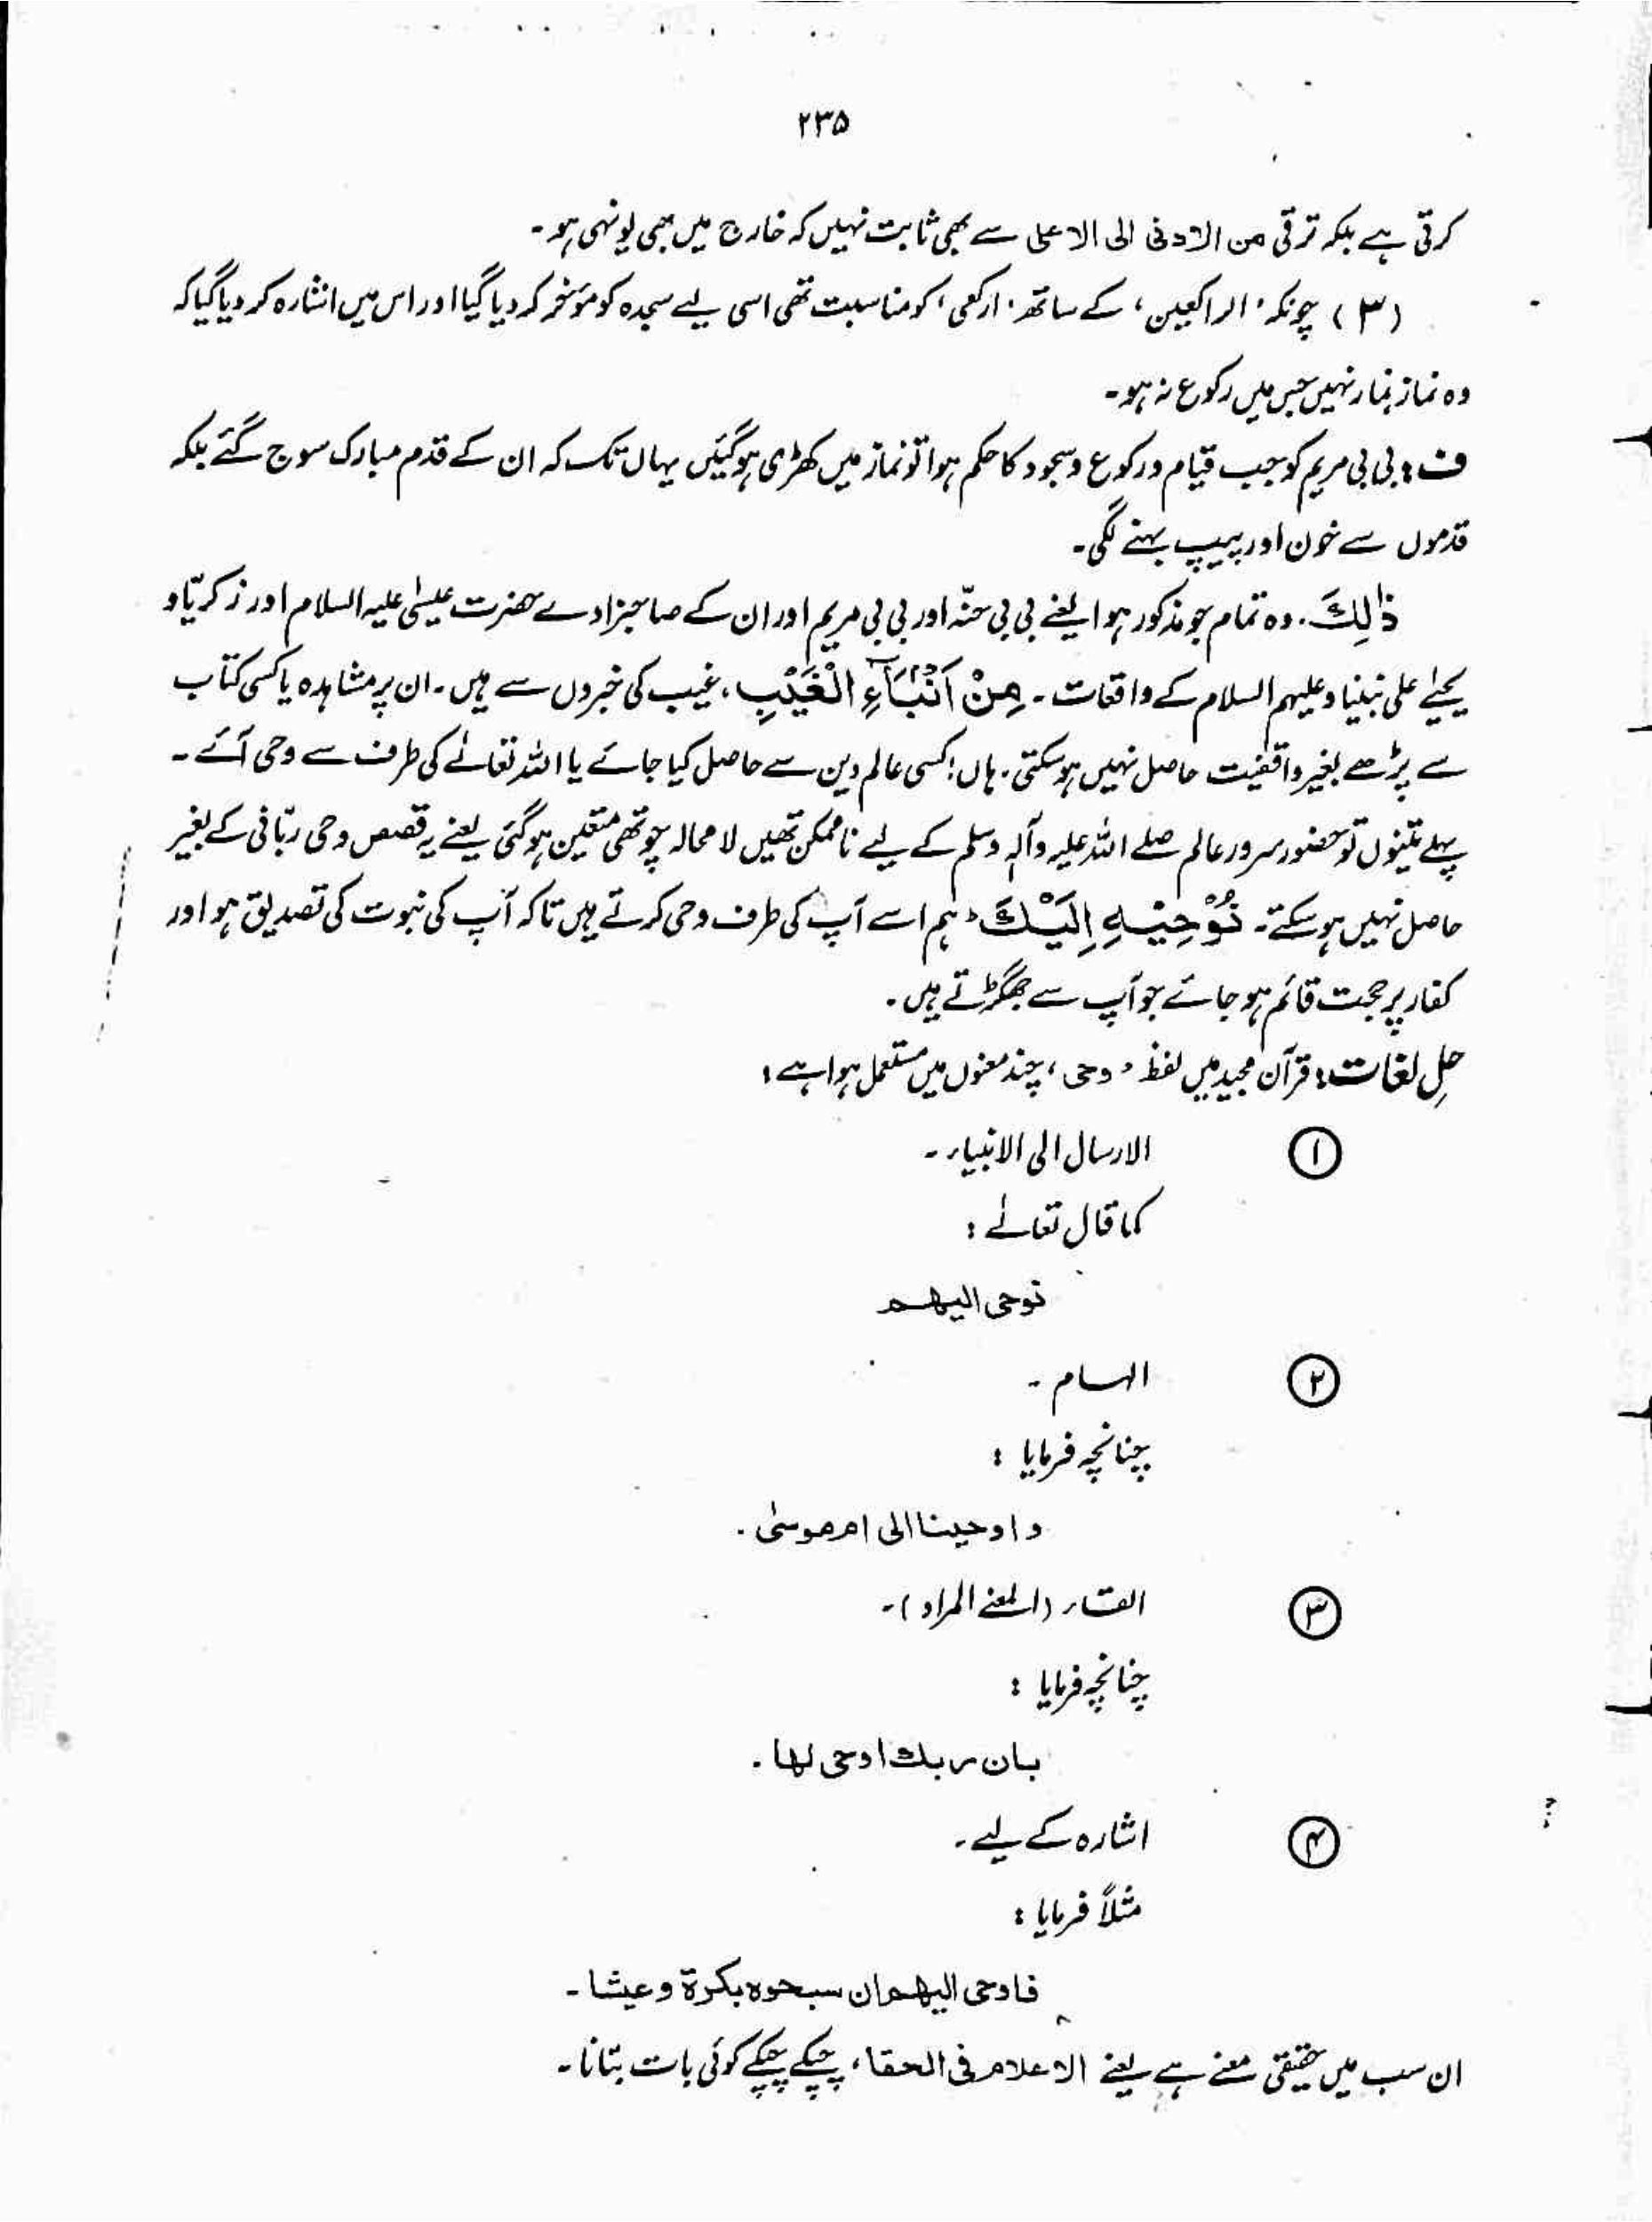 ۲۳۵
کرتی ہے بلکہ ترقی من الادنٰی الی الاعلی سے بھی ثابت نہیں کہ خارج میں بھی یونہی ہو۔
(۳) چونکہ 'الراکعین' کے ساتھ 'ارکعی' کو مناسبت تھی اسی لیے سجدہ کو مؤخر کر دیا گیا اور اس میں اشارہ کر دیا گیا کہ
وہ نماز نماز نہیں جس میں رکوع نہ ہو۔
ف: بی بی مریم کو جب قیام و رکوع و سجود کا حکم ہوا تو نماز میں کھڑی ہوگئیں یہاں تک کہ ان کے قدم مبارک سوج گئے بلکہ
قدموں سے خون اور پیپ بہنے لگی۔
ذٰلِكَ۔ وہ تمام جو مذکور ہوا یعنے بی بی حنّہ اور بی بی مریم اور ان کے صاحبزادے حضرت عیسٰی علیہ السلام اور زکریّا و
یحیٰے علی نبینا و علیہم السلام کے واقعات۔ مِنْ اَنْۢبَآءِ الْغَيْبِ، غیب کی خبروں سے ہیں۔ ان پر مشاہدہ یا کسی کتاب
سے پڑھے بغیر واقفیت حاصل نہیں ہوسکتی۔ ہاں! کسی عالم دین سے حاصل کیا جائے یا اللہ تعالےٰ کی طرف سے وحی آئے۔
پہلے تینوں تو حضور سرور عالم صلے اللہ علیہ وآلہٖ وسلم کے لیے ناممکن تھیں لامحالہ چوتھی متعین ہوگئی یعنے یہ قصص وحی ربّانی کے بغیر
حاصل نہیں ہوسکتے۔ نُوْحِيْهِ اِلَيْكَ، ہم اسے آپ کی طرف وحی کرتے ہیں تاکہ آپ کی نبوت کی تصدیق ہو اور
کفار پر حجت قائم ہو جائے جو آپ سے جھگڑتے ہیں۔
حلِ لغات: قرآن مجید میں لفظ 'وحی' چند معنوں میں مستعمل ہوا ہے:
① الارسال الی الانبیاء۔
کما قال تعالےٰ:
نوحی الیھم
② الہام۔
چنانچہ فرمایا:
و اوحینا الی ام موسٰی۔
③ القاء (المعنے المراد)۔
چنانچہ فرمایا:
بان ربك اوحی لھا۔
④ اشارہ کے لیے۔
مثلاً فرمایا:
فاوحی الیھم ان سبحوہ بکرۃ وعیشا۔
ان سب میں حقیقی معنے ہے یعنے الاعلام فی الحقاء، چپکے چپکے کوئی بات بتانا۔